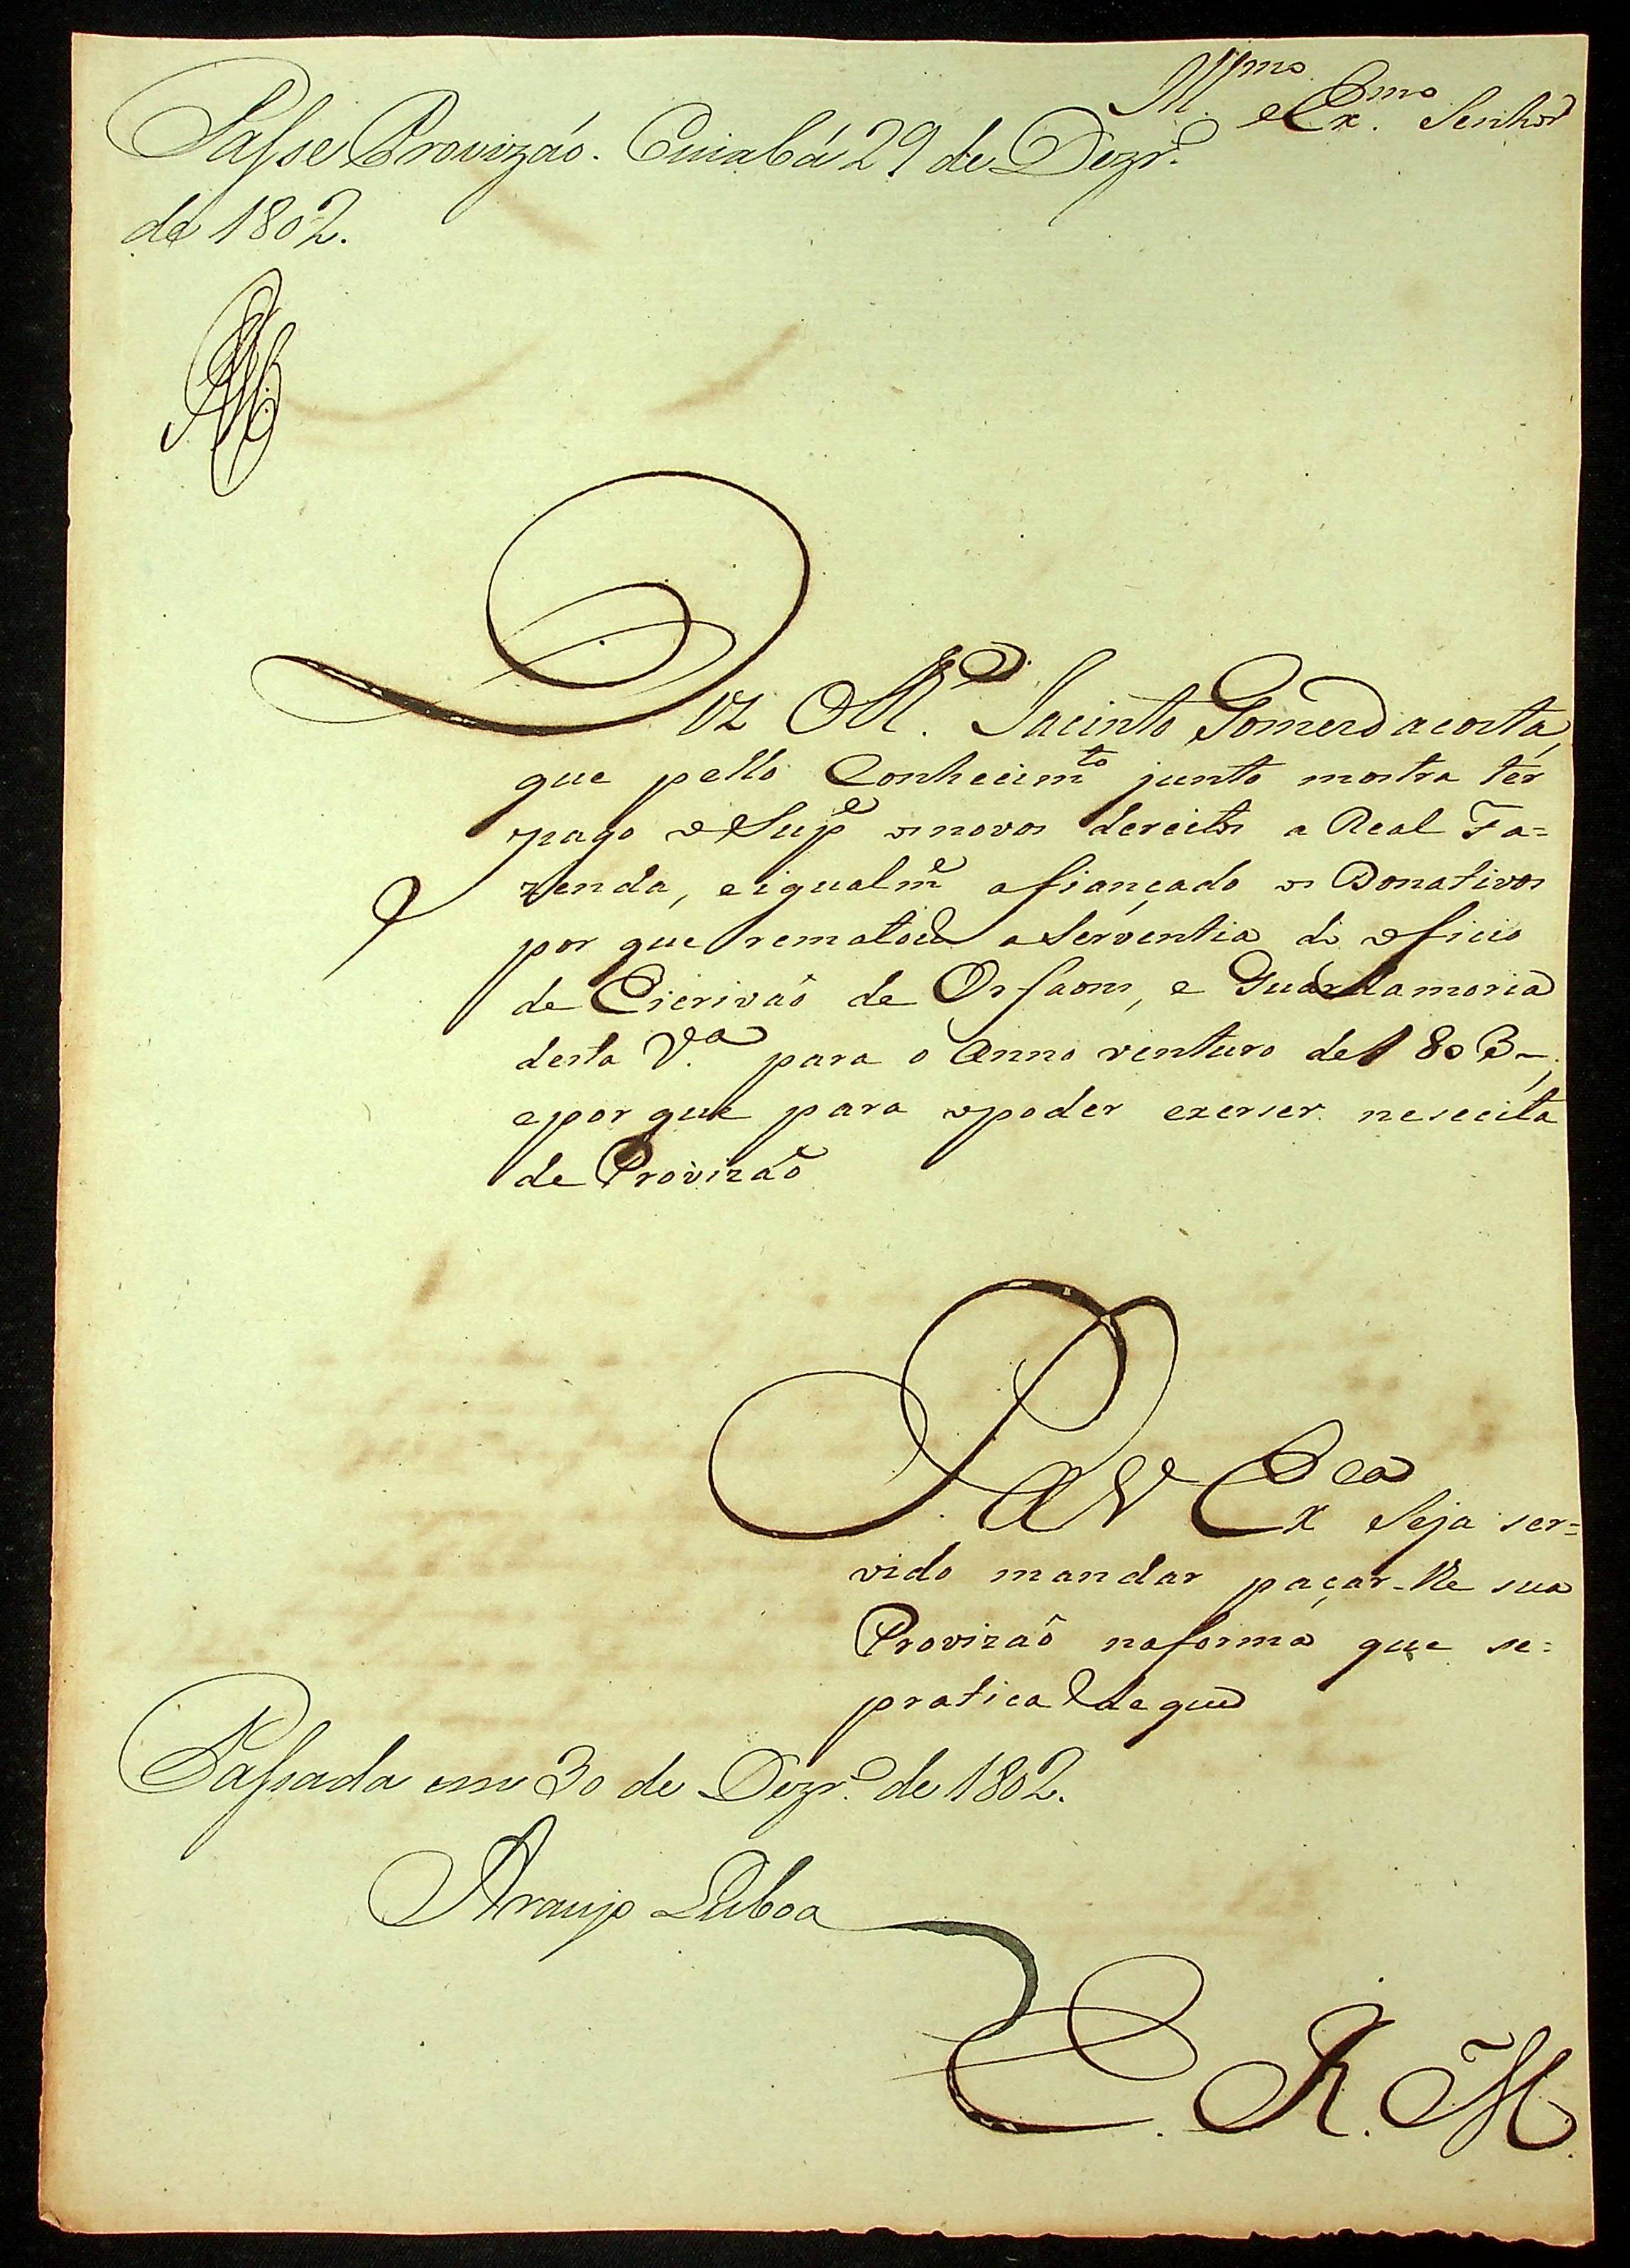 Ill.mo e Ex.mo Senhor
Passe Provizáo. Cuiabá 29 de Dezr.o
de 1802.
Diz M.el Jacinto Gomes da costa,
que pello Conhecim.to junto mostra ter
pago o Sup.e os novos dereitos a Real Fa=
zenda, e igualm.e afiançado os Donativos
por que rematou a Serventia do oficio
de Escrivaõ de Orfaons, e Guardamoria
desta V.a para o Anno venturo de 1803~;
e por que para o poder exerser neseçita
de Provizaõ
P. a V Ex.cia Seja ser=
vido mandar paçar-lhe sua
Provizaõ na forma que se=
pratica de que
Passada em 30 de Dezr.o de 1802.
Araujo Lisboa
E. R. M.